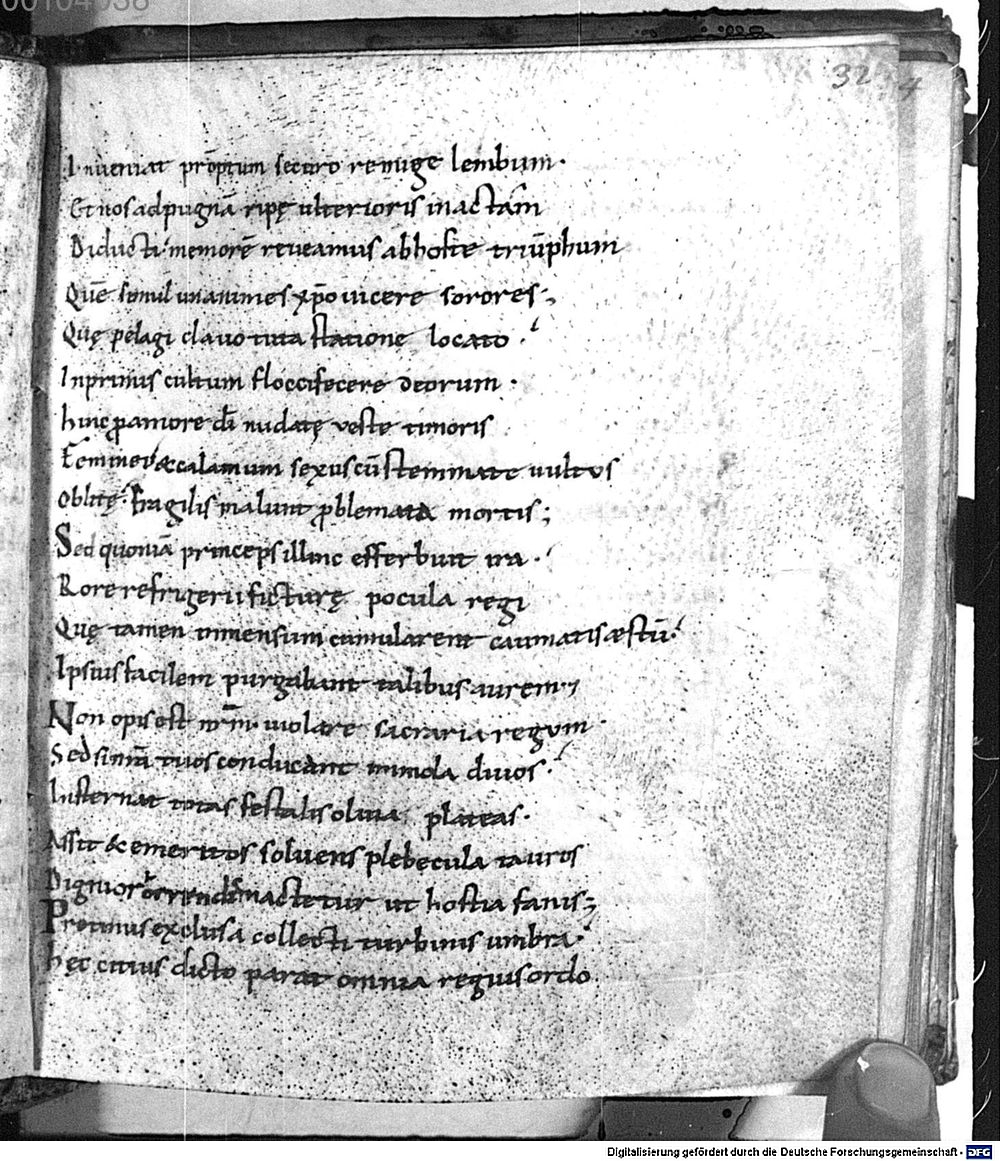 00104038
32
Inueniat prōptum securo remige lembum·
Et nos ad pugnā ripę ulterioris in actam
Diducti· memorē reueamus ab hoste triūphum
Quē simul unanimes xp̄o uicere sorores;
Quę pelagi clauo tuta statione locato·
Inprimis cultum floccifecere deorum·
hinc ꝓ amore dī nudatę veste timoris
Feminev̓ & calamum sexus cū stemmate uultus
Oblitę· fragilis malunt ꝓblemata mortis;
Sed quoniā princeps illinc efferbuit ira·
Rore refrigerii ficturę pocula regi
Quę tamen immensum cumularent caumatis æstū·
Ipsius facilem purgabant talibus aurem;
Non opis est nr̄m uiolare sacraria regum·
Sed simā tuos conducant immola diuos·
Insternat totas festalis oliua plateas·
Assit & emeritos soluens plebecula tauros
Dignior mactetur ut hostia fanis;
Protinus exclusa collecti turbinis umbra·
hęc citius dicto parat omnia regius ordo
Digitalisierung gefördert durch die Deutsche Forschungsgemeinschaft - DFG